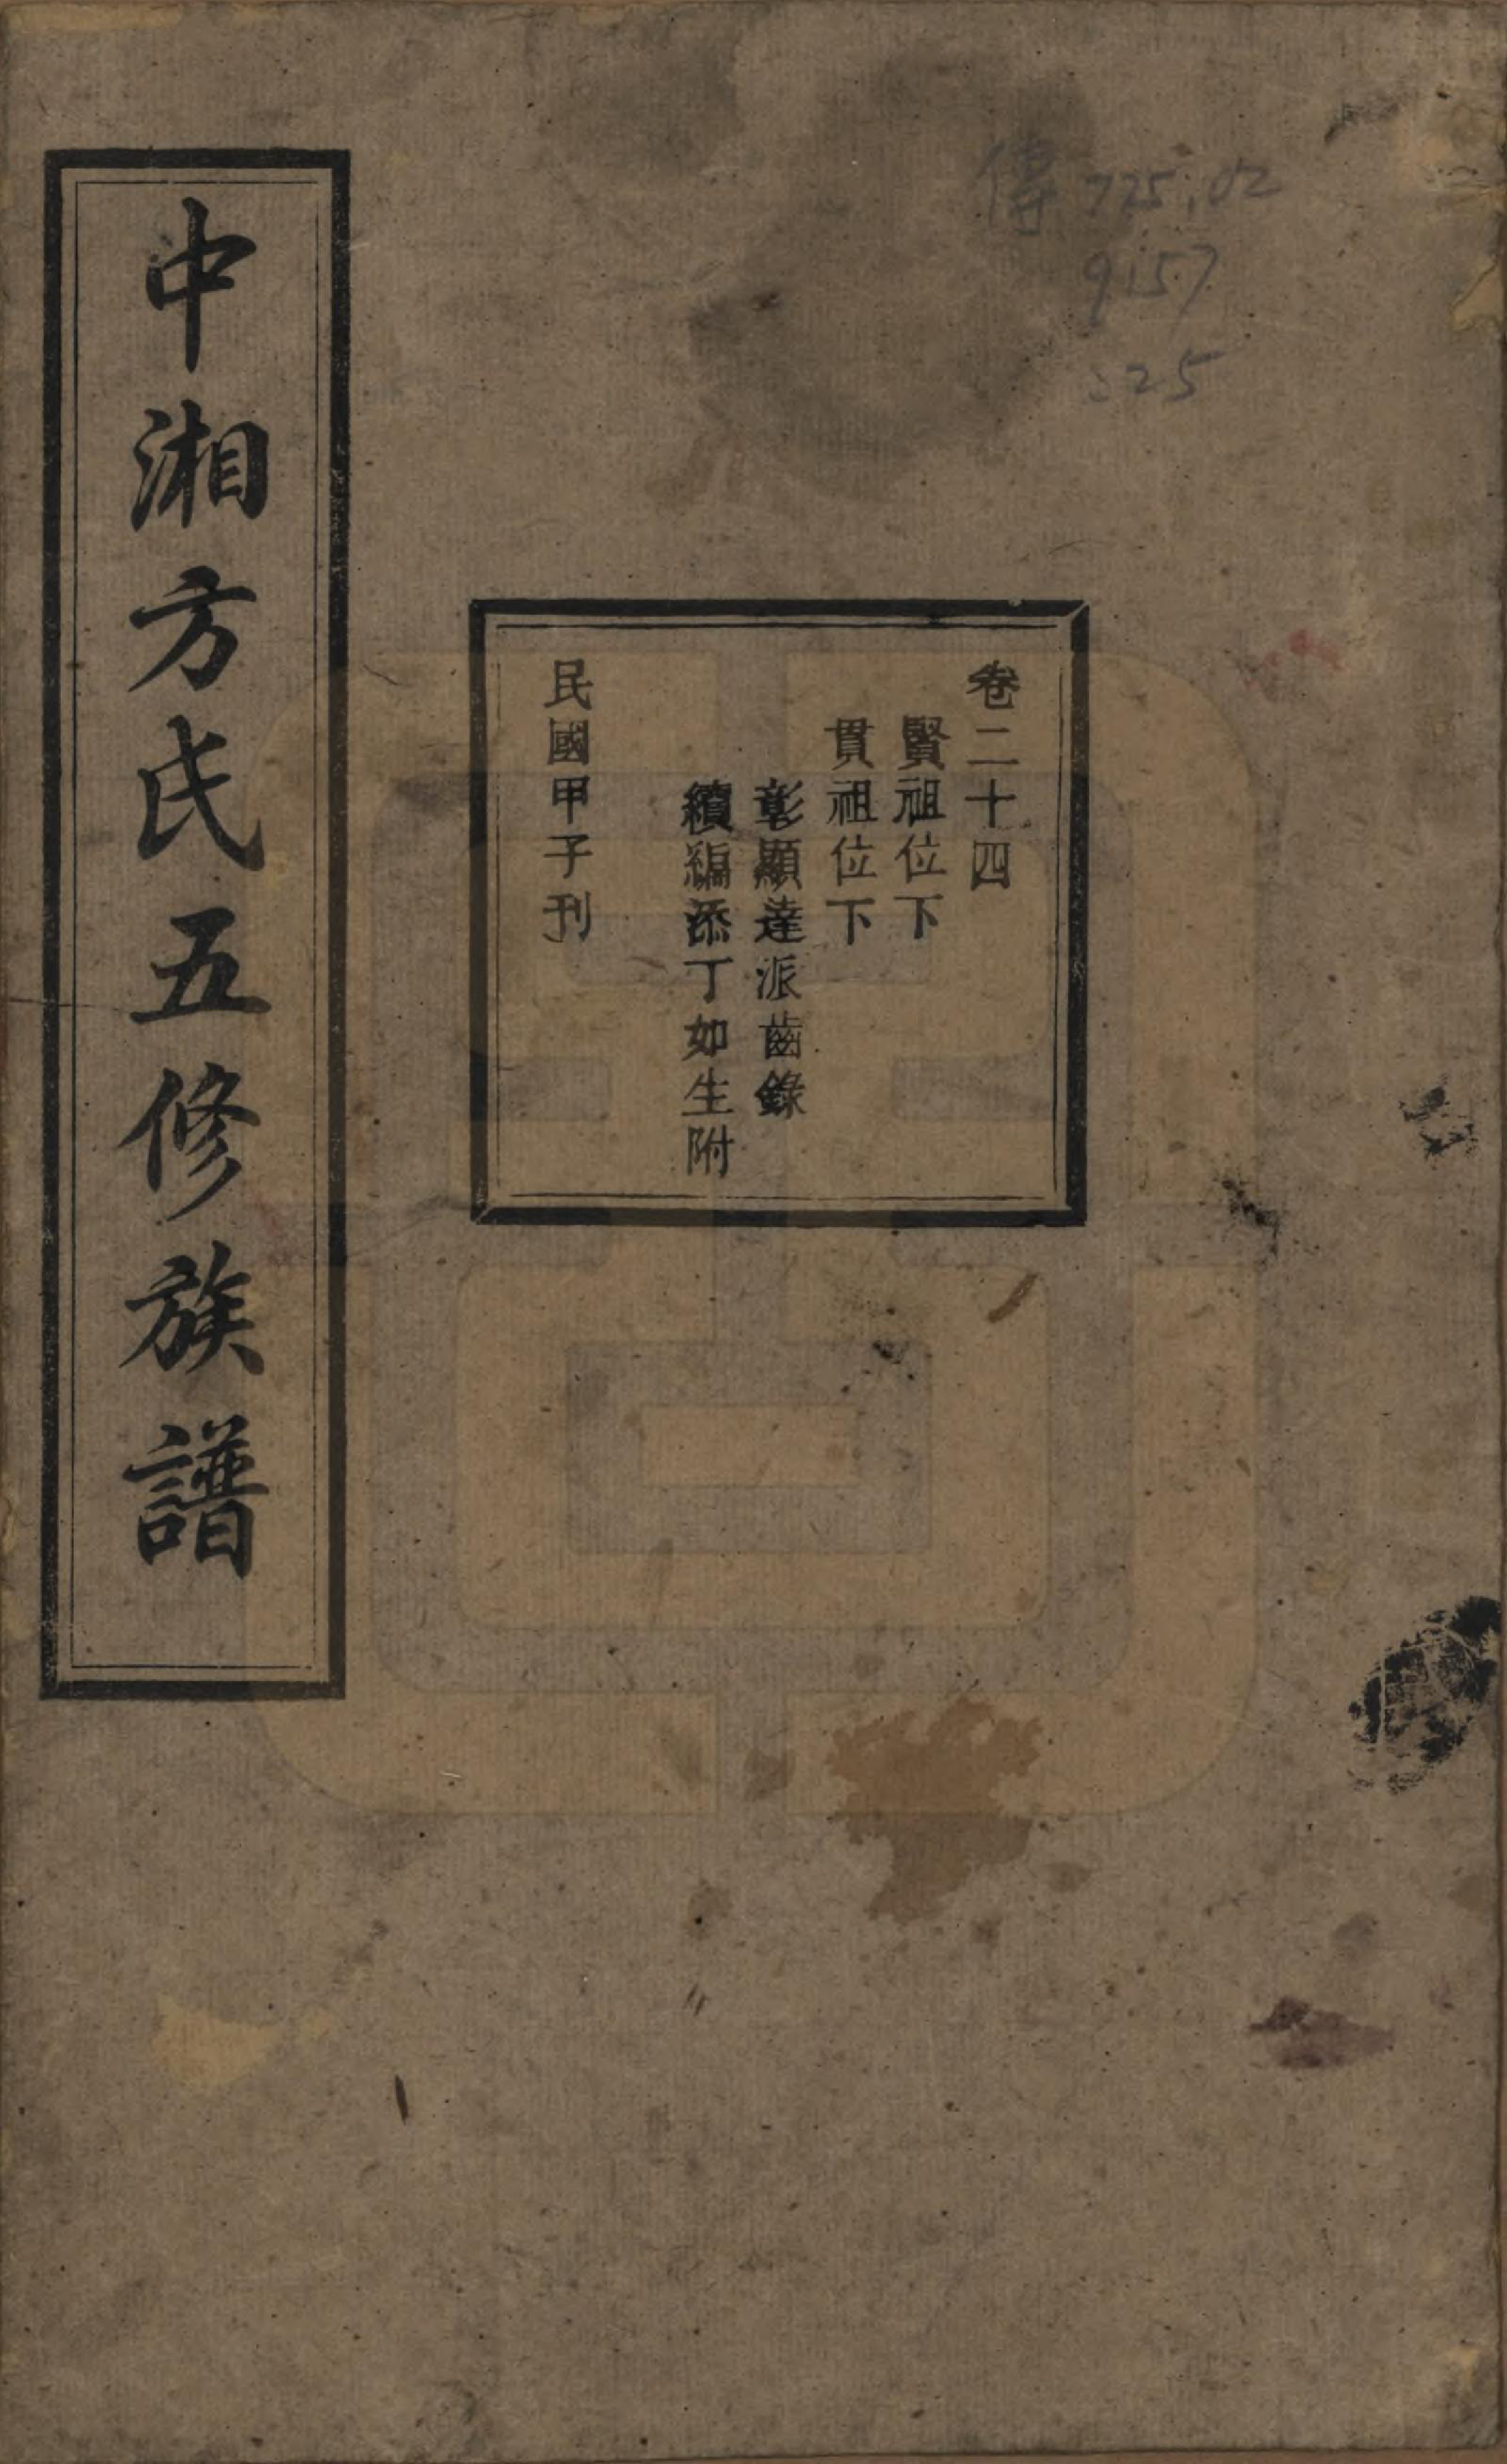 中湘方氏五修族譜
卷二十四
賢祖位下
貫祖位下
彰顯達派齒錄
續編添丁如生附
民國甲子刊
傳 725.02
9157
:25